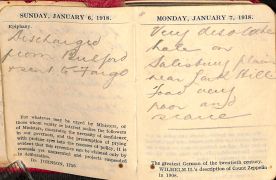 SUNDAY, JANUARY 6, 1918.
Epiphany.
Discharged
from Bulford
sent to Fargo
For whatever may be urged by Ministers, or
those whom vanity or interest makes the followers
of Ministers, concerning the necessity of confidence
in our governors, and the presumption of prying
with profane eyes into the recesses of policy, it is
evident that this reverence can be claimed only by
counsels yet unexecuted and projects suspended
in deliberation.
MONDAY, JANUARY 7, 1918.
Very desolate
here on
Salisbury plain
near Lark Hill
Food very
poor and
scarce
The greatest German of the twentieth century.
WILHELM II.'s description of Count Zeppelin
in 1908.